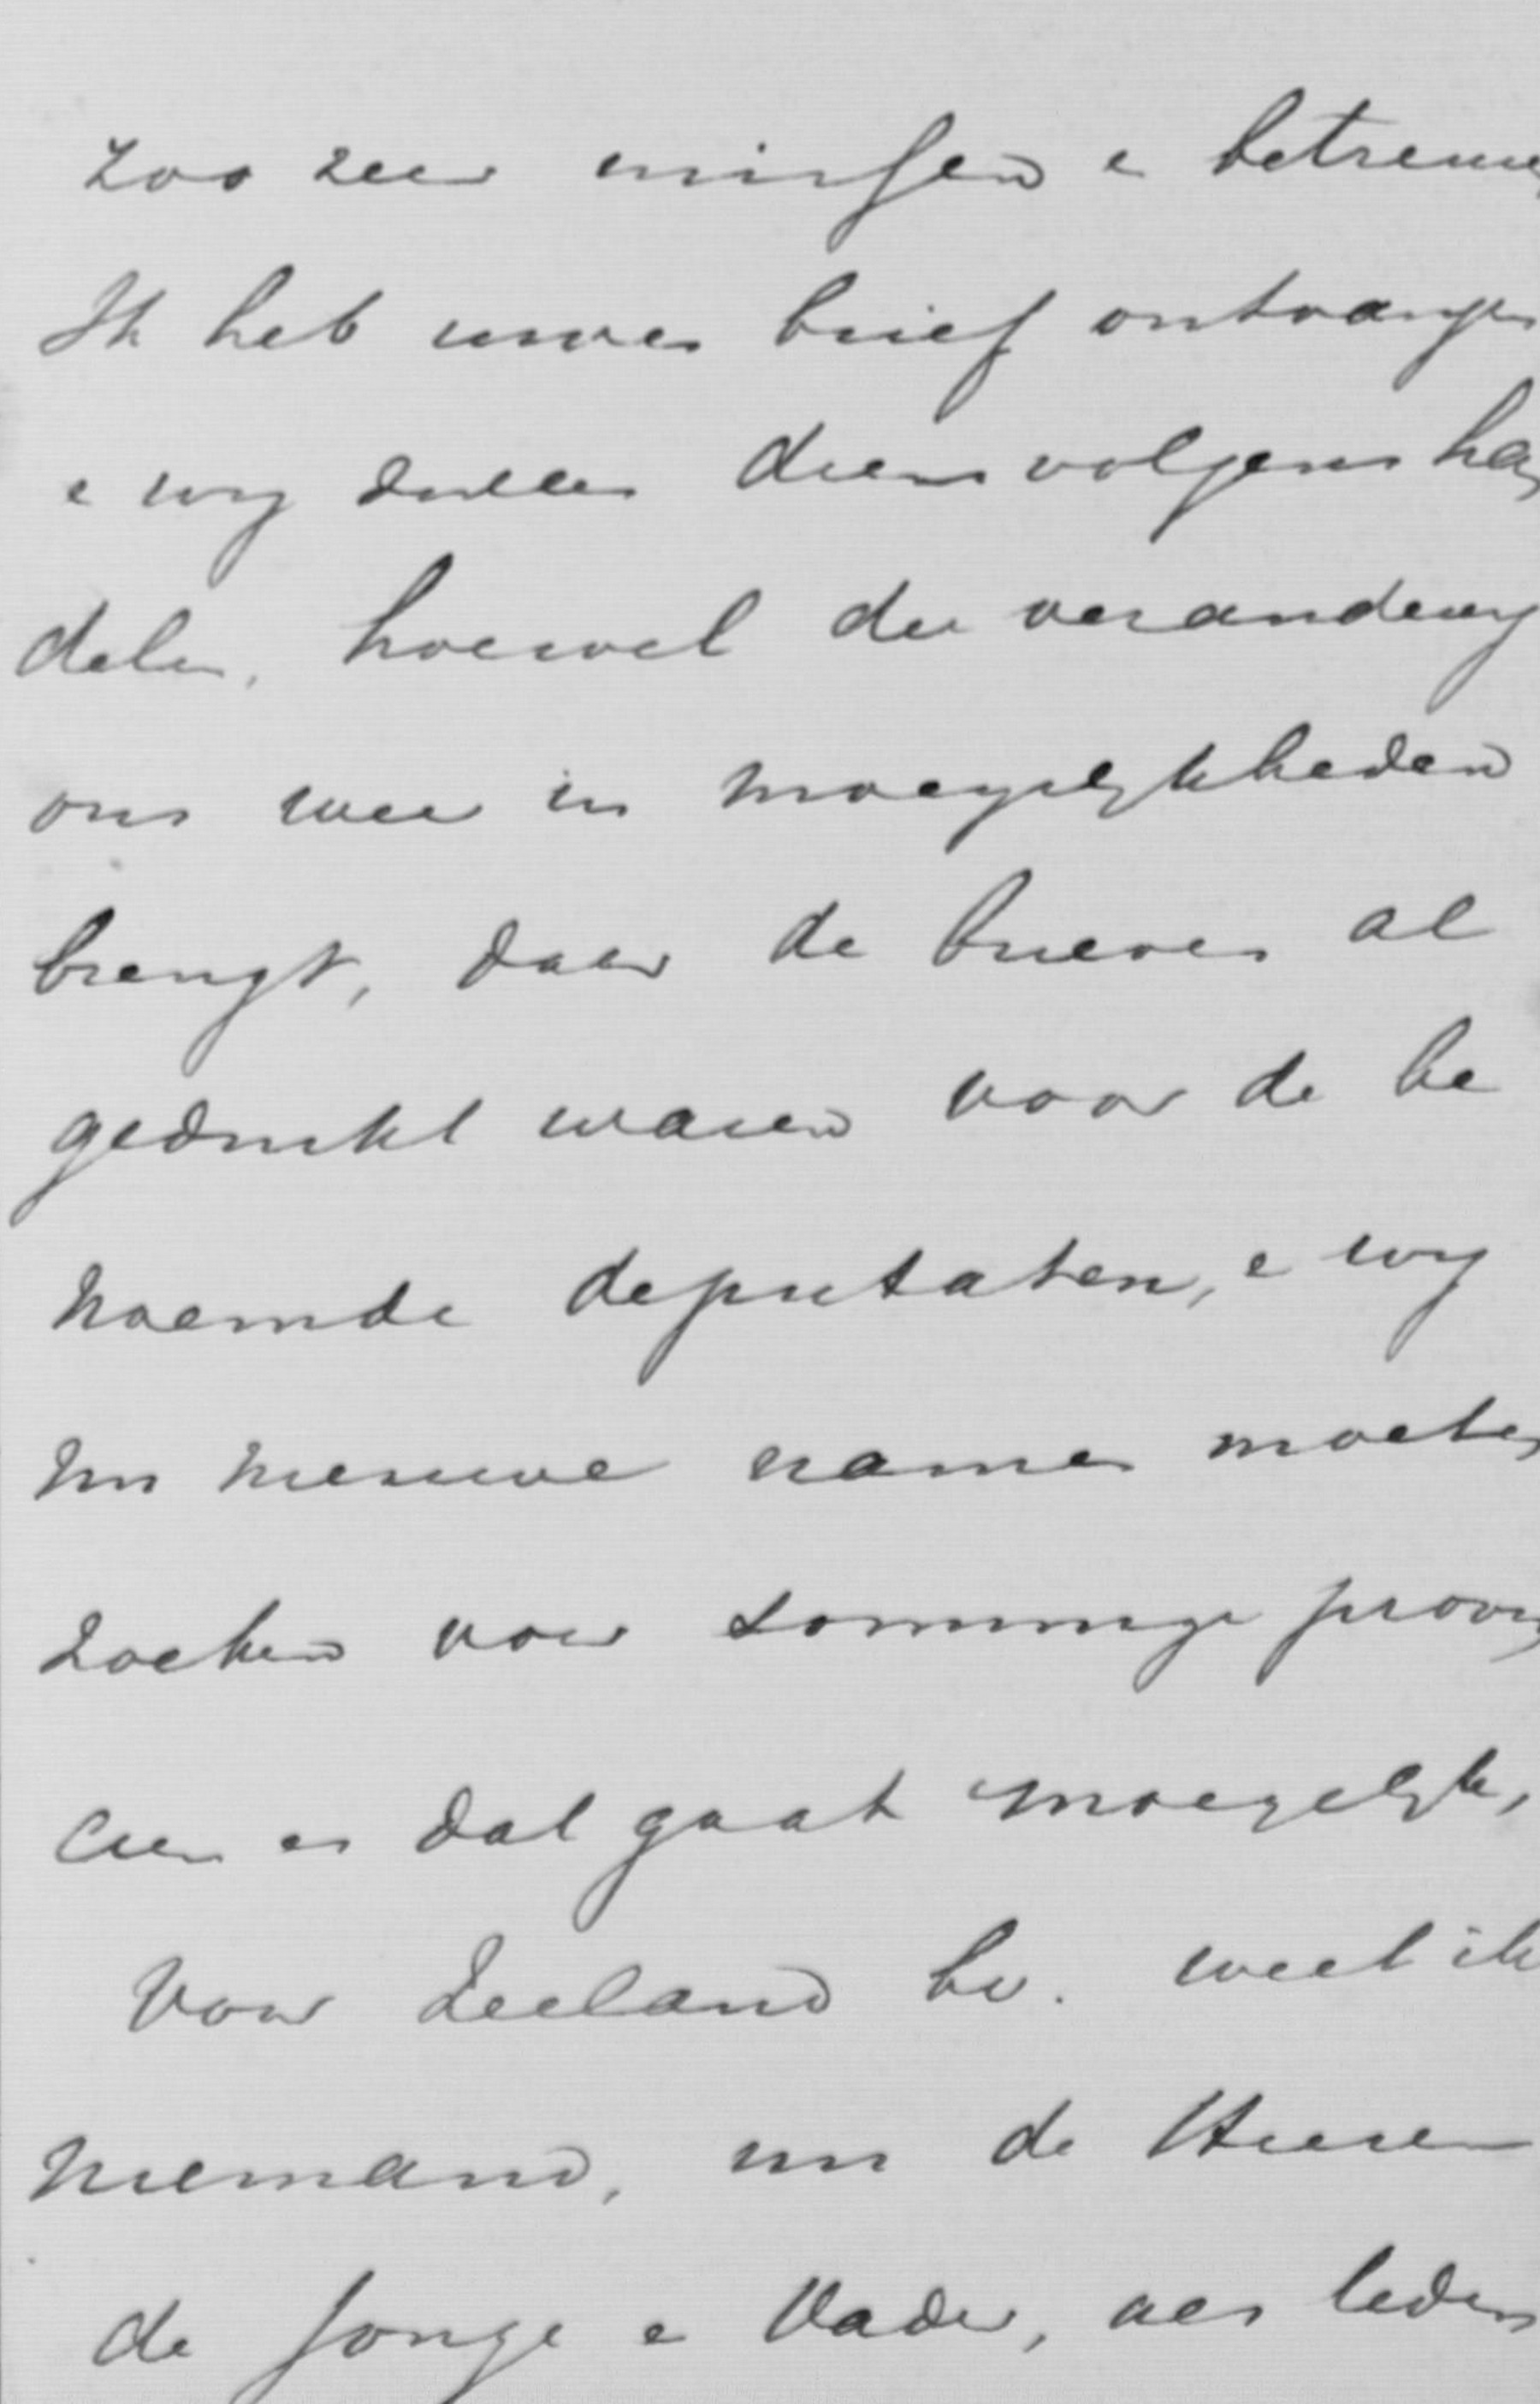 zoo zeer missen e betreur
Ik heb uwen brief ontvangen
e wy zullen dien volgens han
delen, hoewel die verandering
ons weer in moeyelykheden
brengt, daar de brieven al
gedrukt waren voor de be
noemde deputaten, e wy
nu nieuwe namen moeten
zoeken voor sommige provin
cien en dat gaat moeyelyk,
Voor Zeeland bv. weet ik
niemand, nu de Heeren
de Jonge e Vader, als leden